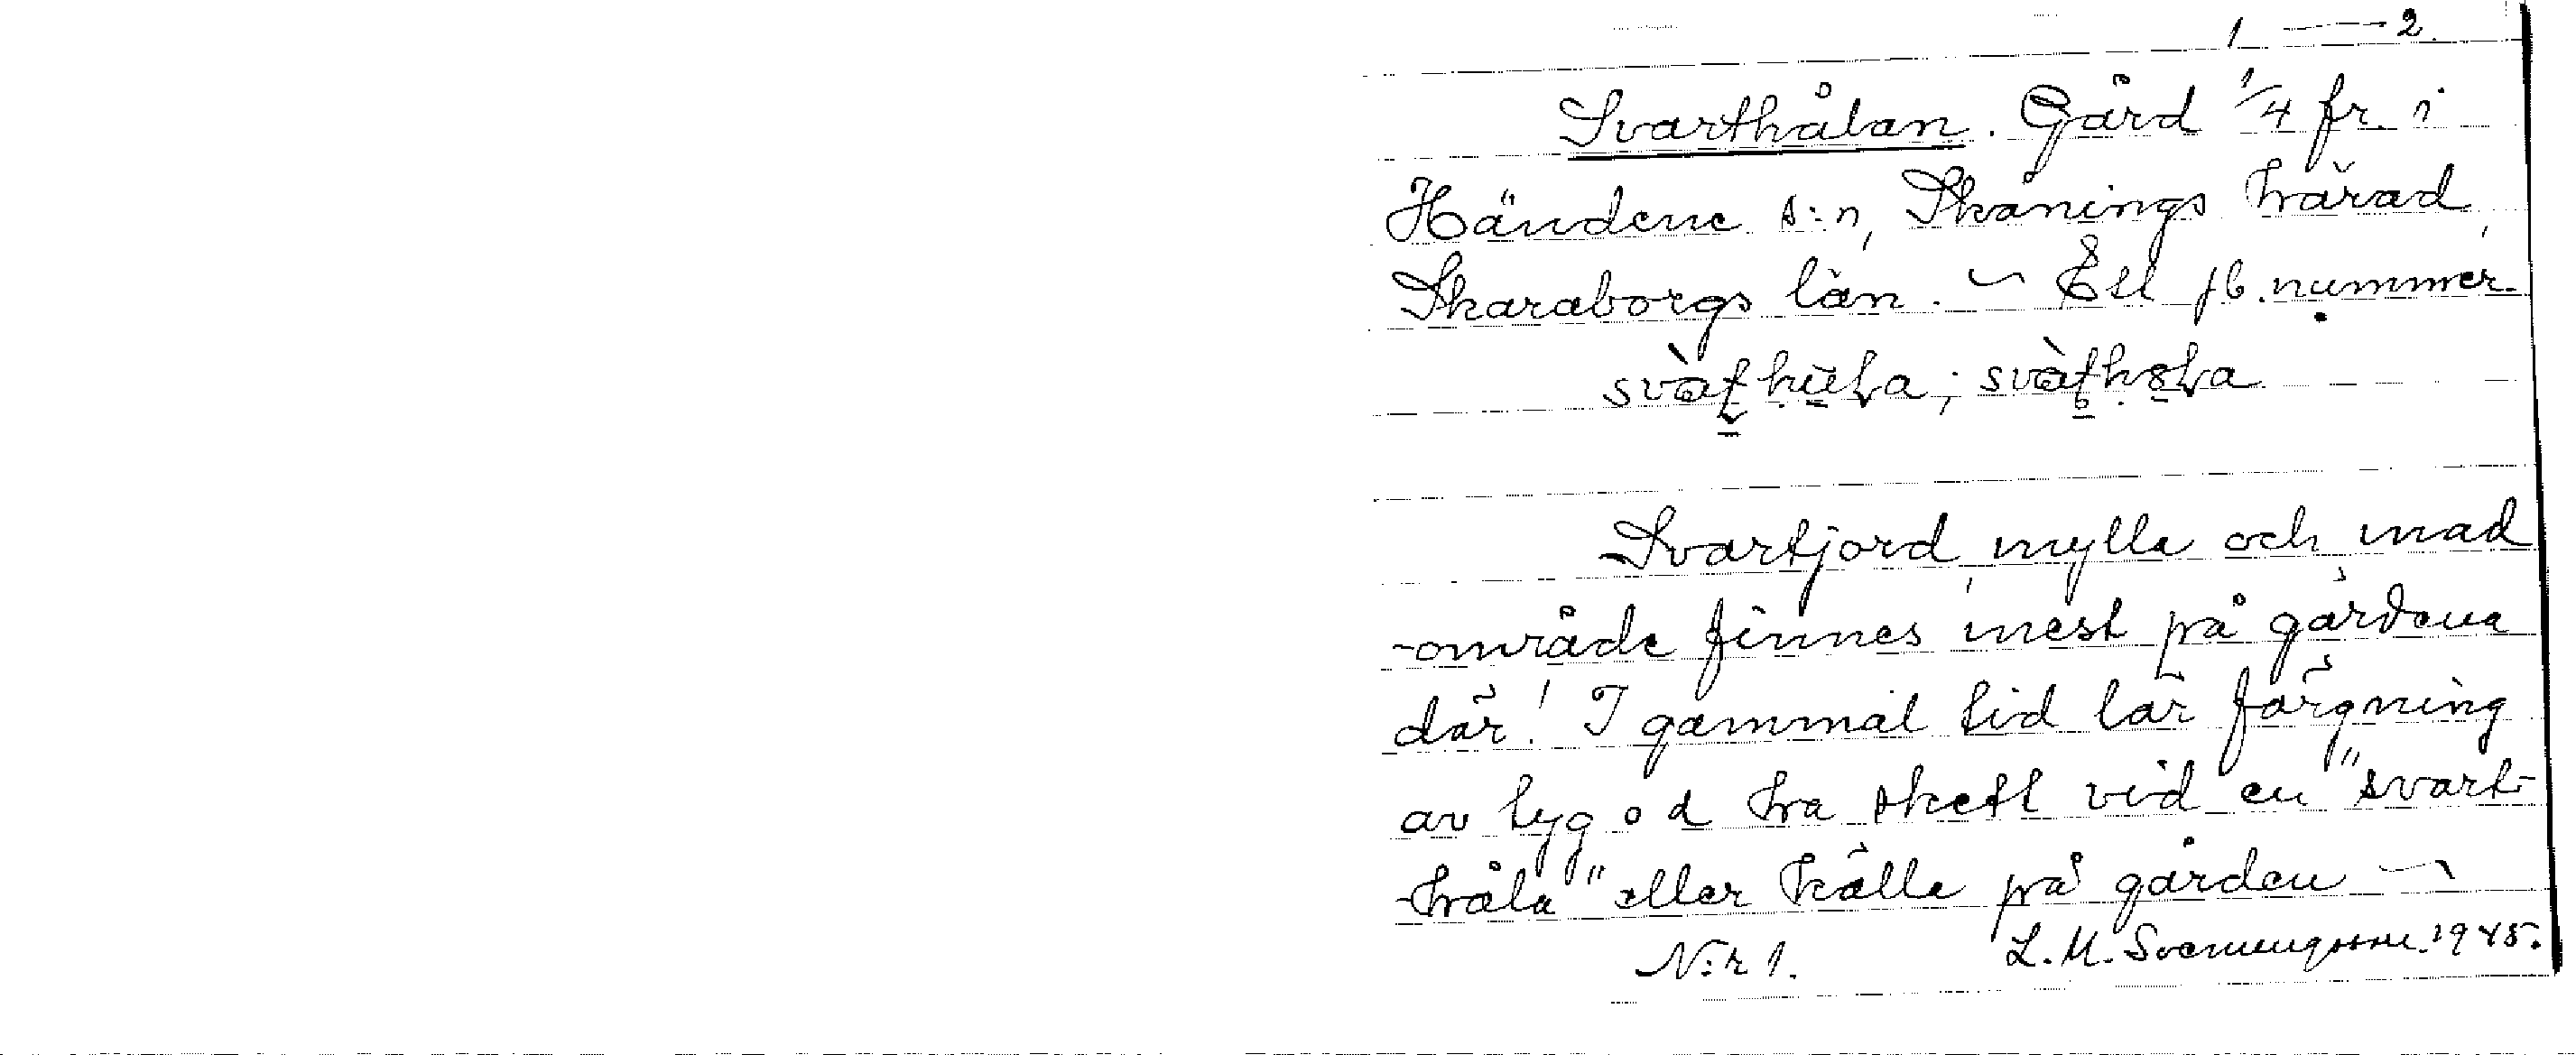 1 — 2.
Svarthålan. Gård 1/4 fr. i
Händene s:n, Skånings härad,
Skaraborgs län. ~ Ett jb. nummer.
Svartjord, mylla och mad
-område finnes mest på gårdena
där! I gammal tid lär färgning
av tyg o d ha skett vid en "svart-
-håla" eller källa på gården ~
N:r 1. L. M. Svenungsson 1945.